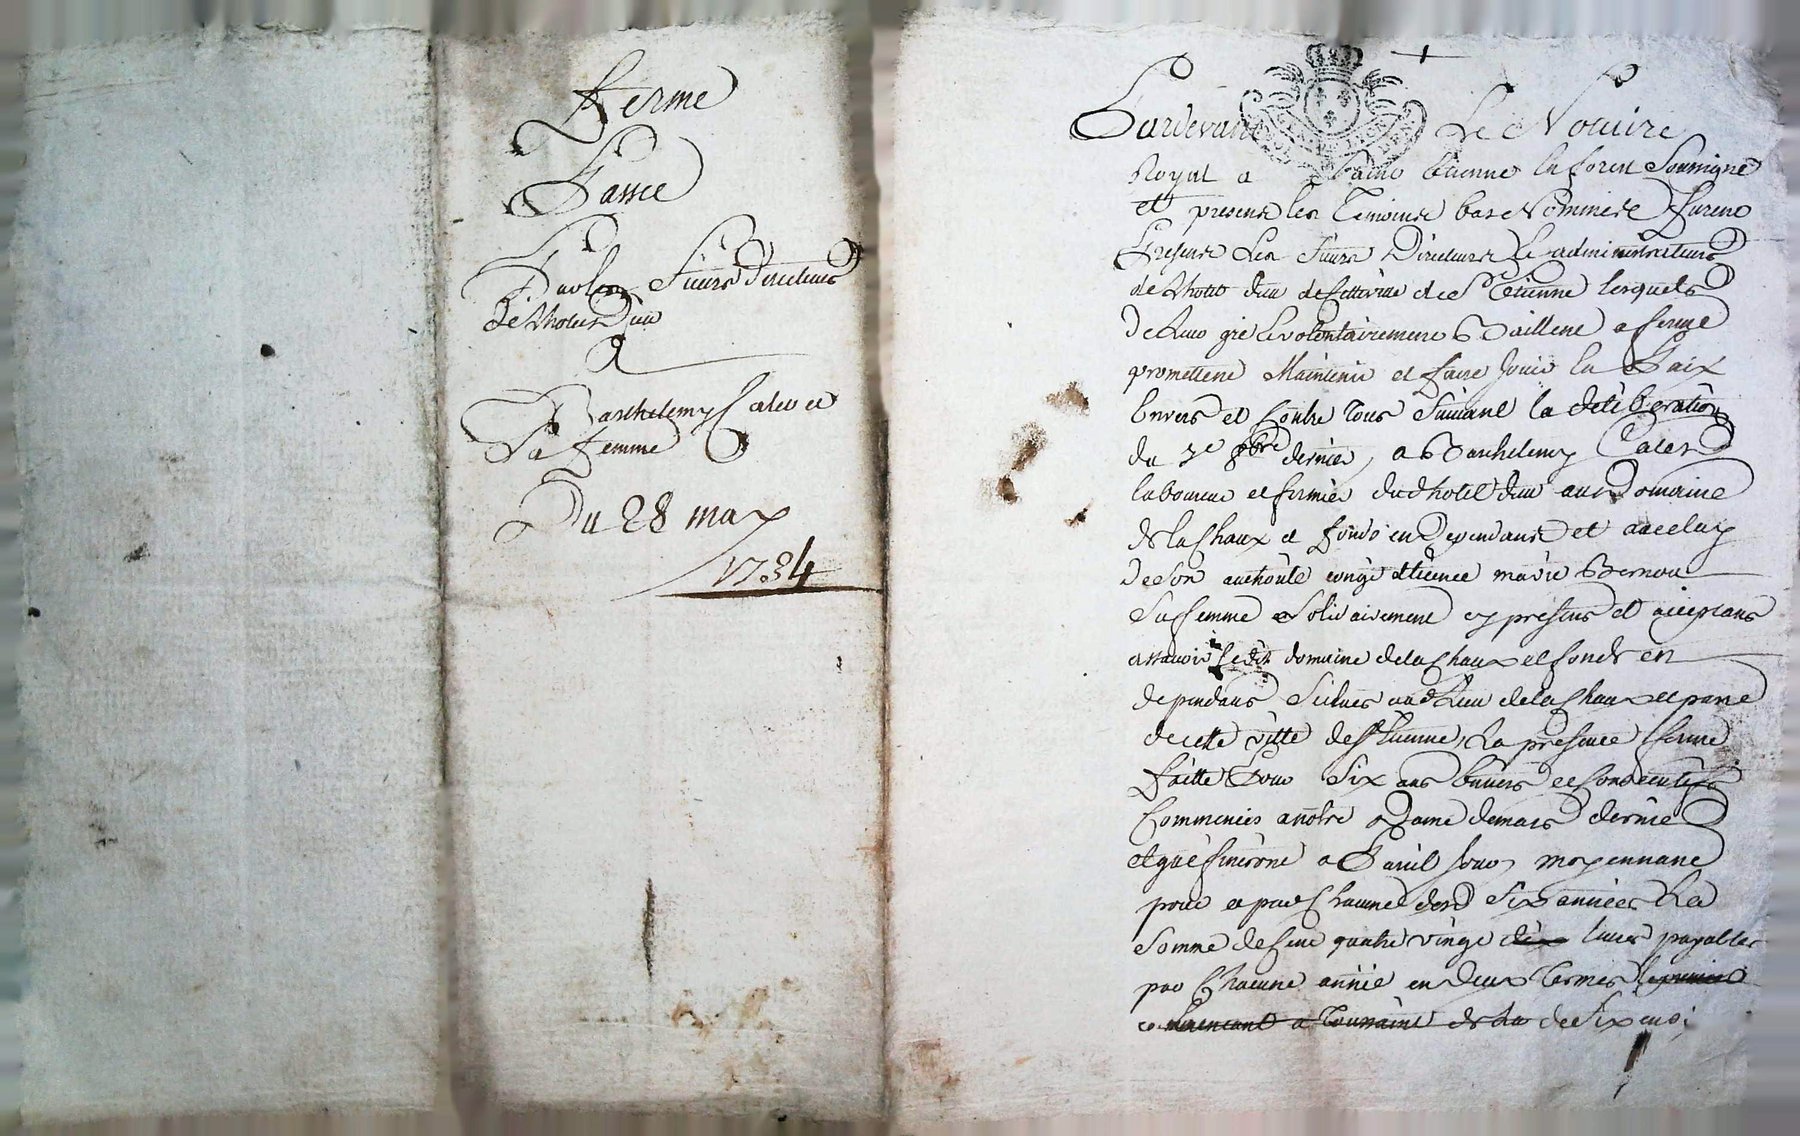 Ferme
Passée
Par les Sieurs Directeurs
de L'hotel Dieu
A
Barthelemy Caler et
Sa femme
Du 28 may
1734
Pardevant Le Notaire
Royal a Saint Etienne en forest Soussigné
et presens les Temoins bas Nommes furent
Presens Les Sieurs Directeurs & administrateurs
de L'hotel dieu de cette ville de St Etienne lesquels
De Leur gré & volontairement Baillent a ferme
promettent Maintenir et faire Jouir En Paix
Envers et Contre Tous Suivant la deliberation
du 3e 8bre dernier, a Barthelemy Caler
laboureur et fermier dud hotel dieu au Domaine
de la Chaux et fonds en Dependant et avec luy
De Son authorité congé et licence marie Bernou
Sa femme Solidairement cy presens et acceptans
assavoir Ledit domaine de la Chaux et fonds en
dependans Scitues aud Lieu de la Chaux et parre
de cette ville de St Etienne, La presente ferme
faitte Pour Six ans Entiers et Consecutifs
Commencés a notre Dame de mars dernier
et qui finiront a Pareil Jour, moyennant
pour et par Chacune desd Six années La
Somme de Cent quatre vingt deux livres payables
par Chacune année en deux Termes le premier
commencant a Toussaint de La de Six en Six